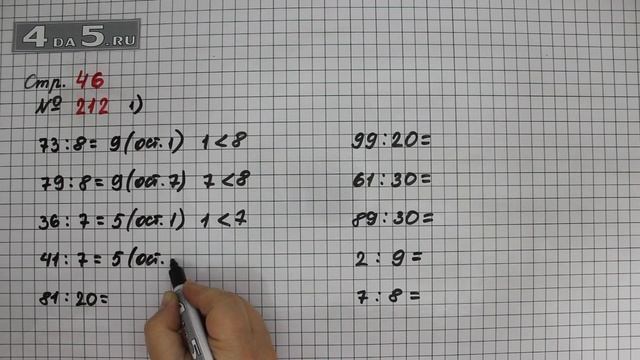 4 DA 5.RU
Стр. 46
№ 212 1)
73 : 8 = 9 (ост. 1) 1 < 8
79 : 8 = 9 (ост. 7) 7 < 8
36 : 7 = 5 (ост. 1) 1 < 7
41 : 7 = 5 (ост.
81 : 20 =
99 : 20 =
61 : 30 =
89 : 30 =
2 : 9 =
7 : 8 =